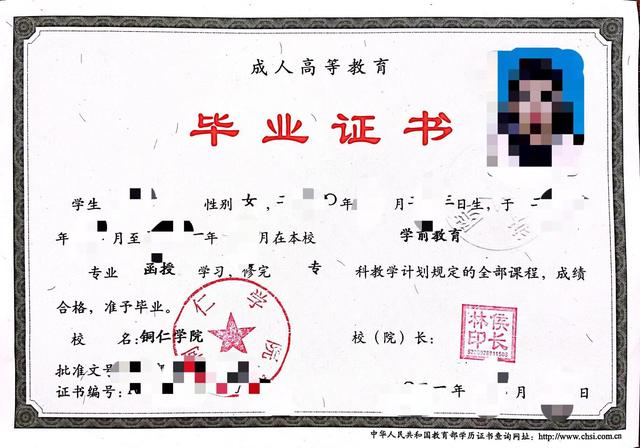 成人高等教育
毕业证书
学生 性别 女， 年 月 日生，于
年 月至 一年 月在本校 学前教育
专业 函授 学习，修完 专 科教学计划规定的全部课程，成绩
合格，准于毕业。
校 名：铜仁学院 校（院）长：
侯长林印
5200028111508
批准文号
证书编号： 一年 月 日
中华人民共和国教育部学历证书查询网址：http://www.chsi.com.cn